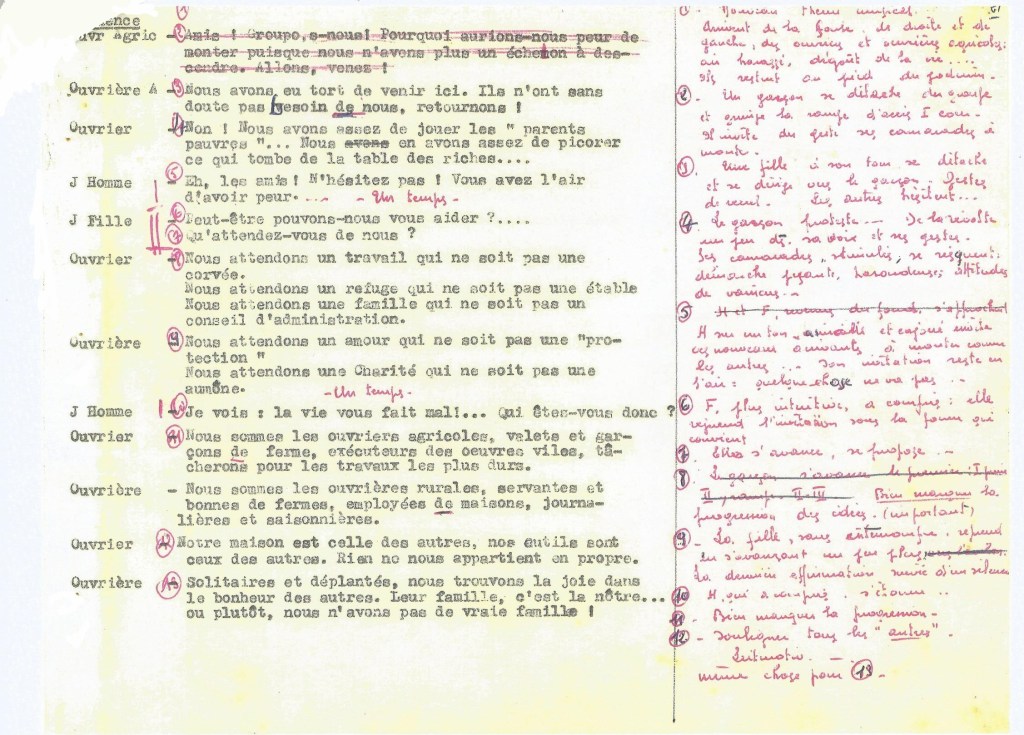 ence
uvr Agric - ② Amis ! Groupo,s-nous! Pourquoi aurions-nous peur de
monter puisque nous n'avons plus un échemon à des-
cendre. Allons, venes !
Ouvrière A - ③ Nous avons eu tort de venir ici. Ils n'ont sans
doute pas besoin de nous, retournons !
Ouvrier - ④ Non ! Nous avons assez de jouer les " parents
pauvres "... Nous avons en avons assez de picorer
ce qui tombe de la table des riches....
J Homme ⑤ Eh, les amis ! N'hésitez pas ! Vous avez l'air
d'avoir peur.... - Un temps -
J Fille ⑥ Peut-être pouvons-nous vous aider ?....
⑦ Qu'attendez-vous de nous ?
Ouvrier - ⑧ Nous attendons un travail qui ne soit pas une
corvée.
Nous attendons un refuge qui ne soit pas une étable
Nous attendons une famille qui ne soit pas un
conseil d'administration.
Ouvrière ⑨ Nous attendons un amour qui ne soit pas une "pro-
tection "
Nous attendons une Charité qui ne soit pas une
aumône. - Un temps -
J Homme - ⑩ Je vois : la vie vous fait mal!... Qui êtes-vous donc ?
Ouvrier ⑪ Nous sommes les ouvriers agricoles, valets et gar-
çons de ferme, exécuteurs des oeuvres viles, tâ-
cherons pour les travaux les plus durs.
Ouvrière - Nous sommes les ouvrières rurales, servantes et
bonnes de fermes, employées de maisons, journa-
lières et saisonnières.
Ouvrier ⑫ Notre maison est celle des autres, nos outils sont
ceux des autres. Rien ne nous appartient en propre.
Ouvrière ⑬ - Solitaires et déplantés, nous trouvons la joie dans
le bonheur des autres. Leur famille, c'est la nôtre...
ou plutôt, nous n'avons pas de vraie famille !
Nouveau thème musical.
Arrivent de la gauche, de droite et de
gauche, des ouvriers et ouvrières agricoles:
air harassé, dégoût de la vie....
Ils restent au pied du podium.
② - Un garçon se détache du groupe
et grimpe la rampe d'accès I cour.
Il invite du geste ses camarades à
monter.
③ - Une fille à son tour se détache
et se dirige vers le garçon. Gestes
de recul. Les autres hésitent...
④ Le garçon proteste... De la révolte
un peu ds sa voix et ses gestes.
Ses camarades, stimulés, se risquent:
démarche pesante, hasardeuse; attitudes
de vaincus...
⑤ - H et F, venus du fond, s'approchent
H sur un ton aimable et enjoué invite
ces nouveaux arrivants à monter comme
les autres... Son invitation reste en
l'air: quelque chose ne va pas...
⑥ F, plus intuitive, a compris: elle
reprend l'invitation sous la forme qui
convient
⑦ - Elle s'avance, se propose. -
⑧ - Le garçon s'avance le premier: I
II II-III Bien marquer la
progression des idées. (important)
⑨ - La fille, sans, reprend
en s'avançant un peu plus
La dernière affirmation suivie d'un silence
⑩ H, qui a compris, s'étonne...
⑪ - Bien marquer la progression -
⑫ - Souligner tous les "autres".
Leitmotiv.
même chose pour ⑬ -